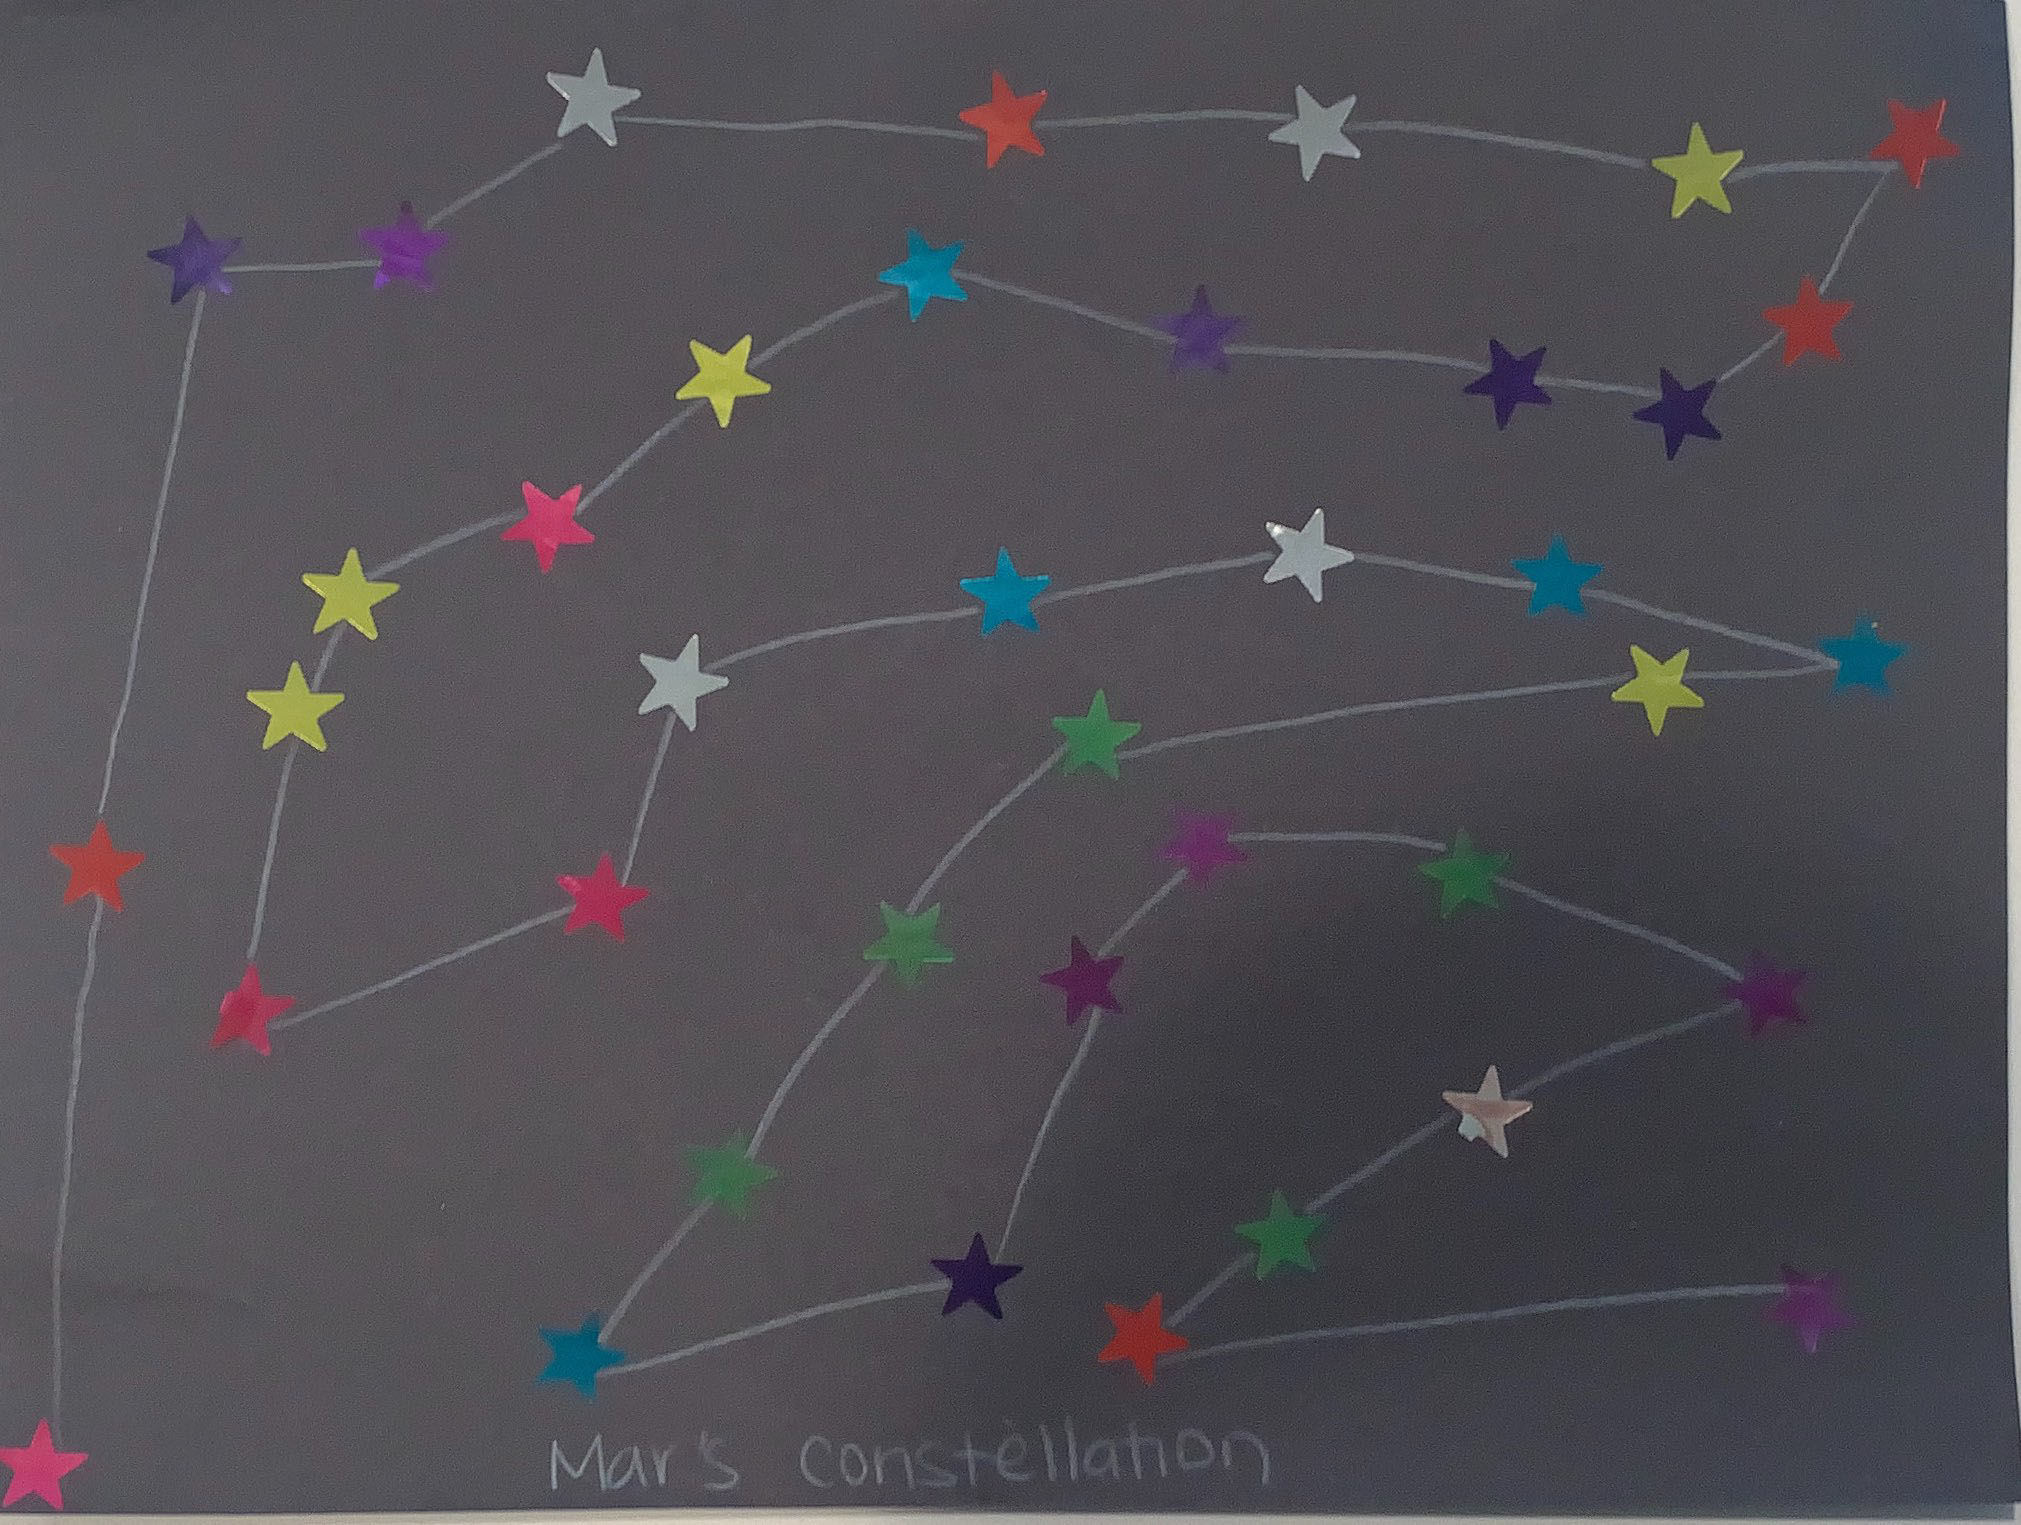 Mar's constellation